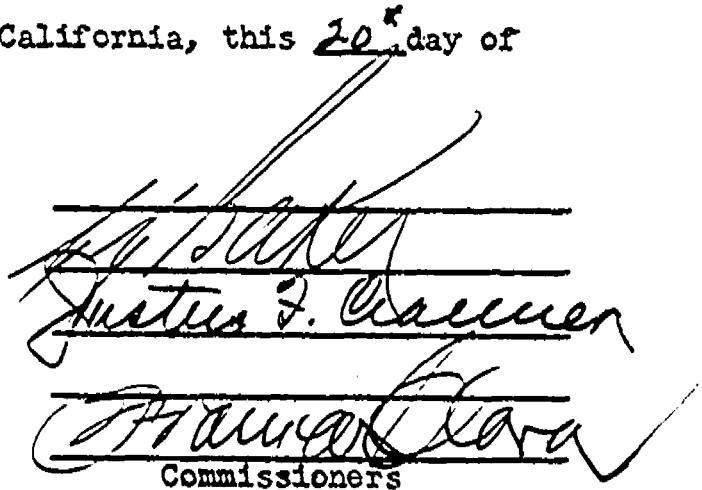 California, this 20th day of
Baker
Justus F. Craemer
Commissioners